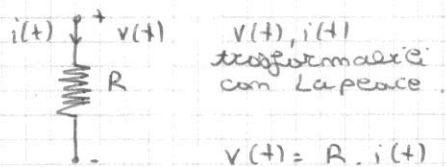 i(t) + v(t) v(t), i(t)
trasformabili
R con Lapeace.
- v(t) = R . i(t)